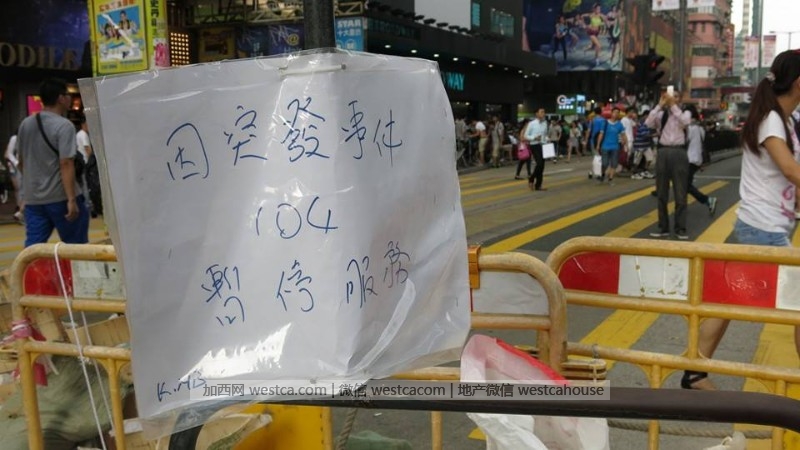 因突發事件
104
暫停服務
K.M.B
加西网 westca.com | 微信 westcacom | 地产微信 westcahouse
STAR
WAY